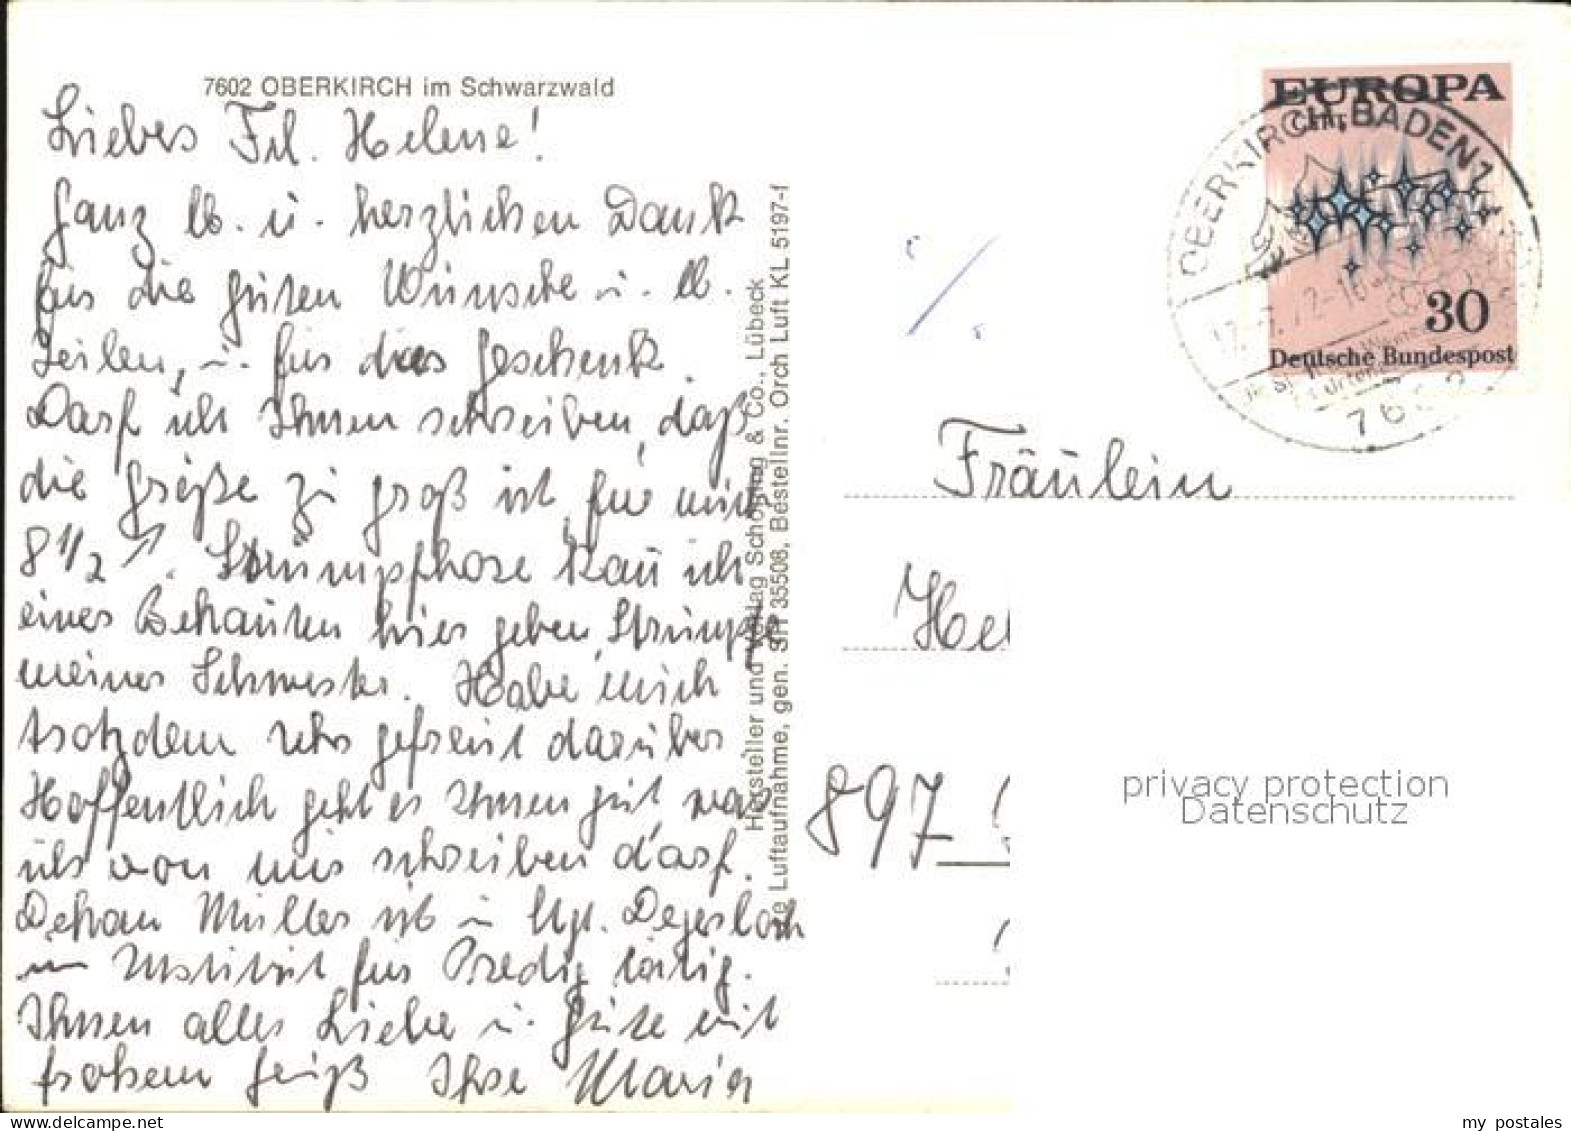 7602 OBERKIRCH im Schwarzwald
Liebes Frl. Helene!
Ganz lb. u. herzlichen Dank
für die guten Wünsche u. lb.
Zeilen, u. für das Geschenk.
Darf ich Ihnen schreiben, daß
die Größe zu groß ist, für mich
8 1/2. Strumpfhose kann ich
einer Bekannten hier geben, Strümpfe
meiner Schwester. Habe mich
trotzdem sehr gefreut darüber
Hoffentlich geht es Ihnen gut, was
ich von mir schreiben darf.
Dekan Müller ist in Stgt. Degerloch
im Institut für Predig tätig.
Ihnen alles Liebe u. Gute mit
frohem Gruß Ihre Maria
Hersteller und Verlag Schöning & Co., Lübeck
Luftaufnahme, gen. SH 35508, Bestellnr. Orch Luft KL 5197-f
EUROPA
CEPT
30
Deutsche Bundespost
OBERKIRCH, BADEN 1
Fräulein
Hel
897
privacy protection
Datenschutz
my_postales